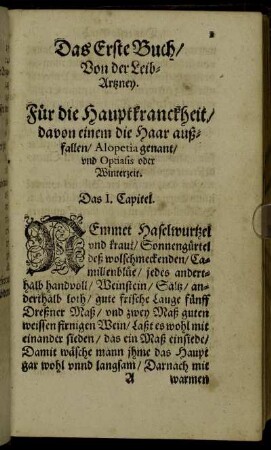 Das Erste Buch/
Von der Leib-
Artzney.
Für die Hauptkranckheit/
davon einem die Haar auß-
fallen/ Alopetia genant/
vnd Optiasis oder
Winterzeit.
Das I. Capitel.
NEmmet Haselwurtzel
vnd kraut/ Sonnengürtel
deß wolschmeckenden/ Ca-
milienblüe/ jedes andert-
halb handvoll/ Weinstein/ Saltz/ an-
derthalb loth/ gute frische Lauge fünff
Dreßner Maß/ vnd zwey Maß guten
weissen firnigen Wein/ Laßt es wohl mit
einander sieden/ das ein Maß einsiede/
Damit wäsche mann jhme das Haupt
gar wohl vnnd langsam/ Darnach mit
A warmen